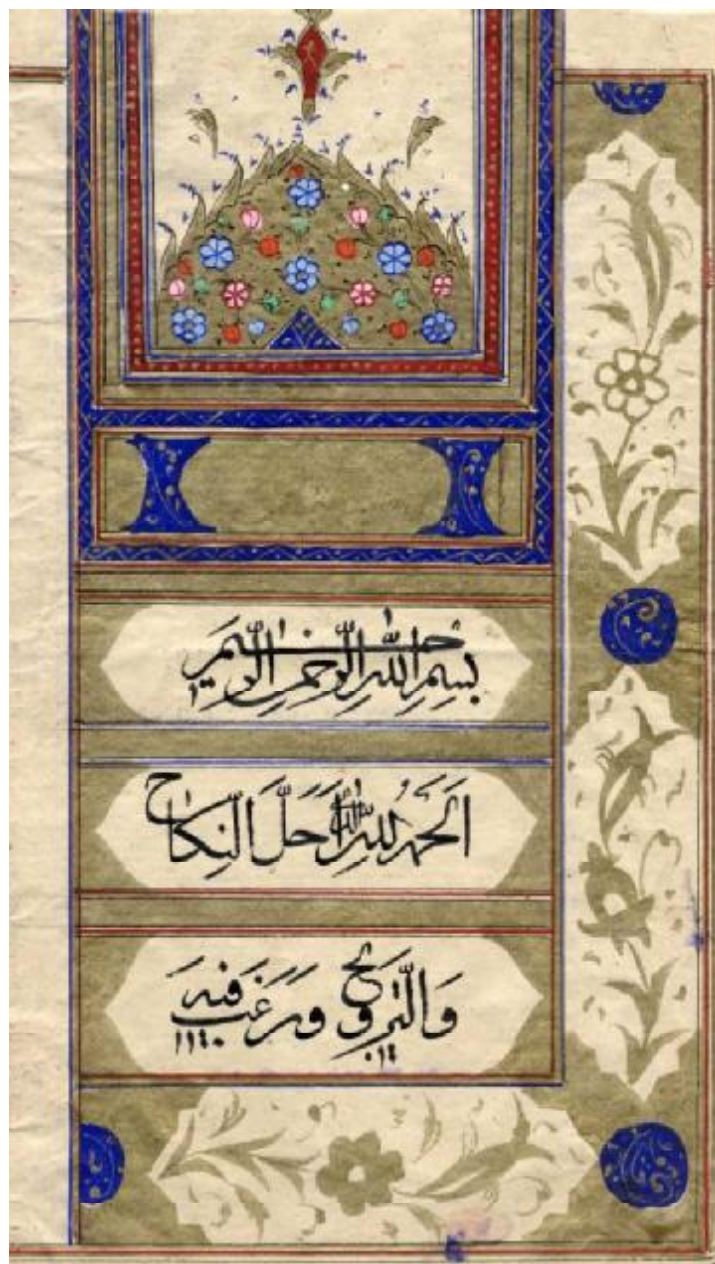 بسم الله الرحمن الرحيم
الحمد لله احل النكاح
والتزويج ورغب فيه